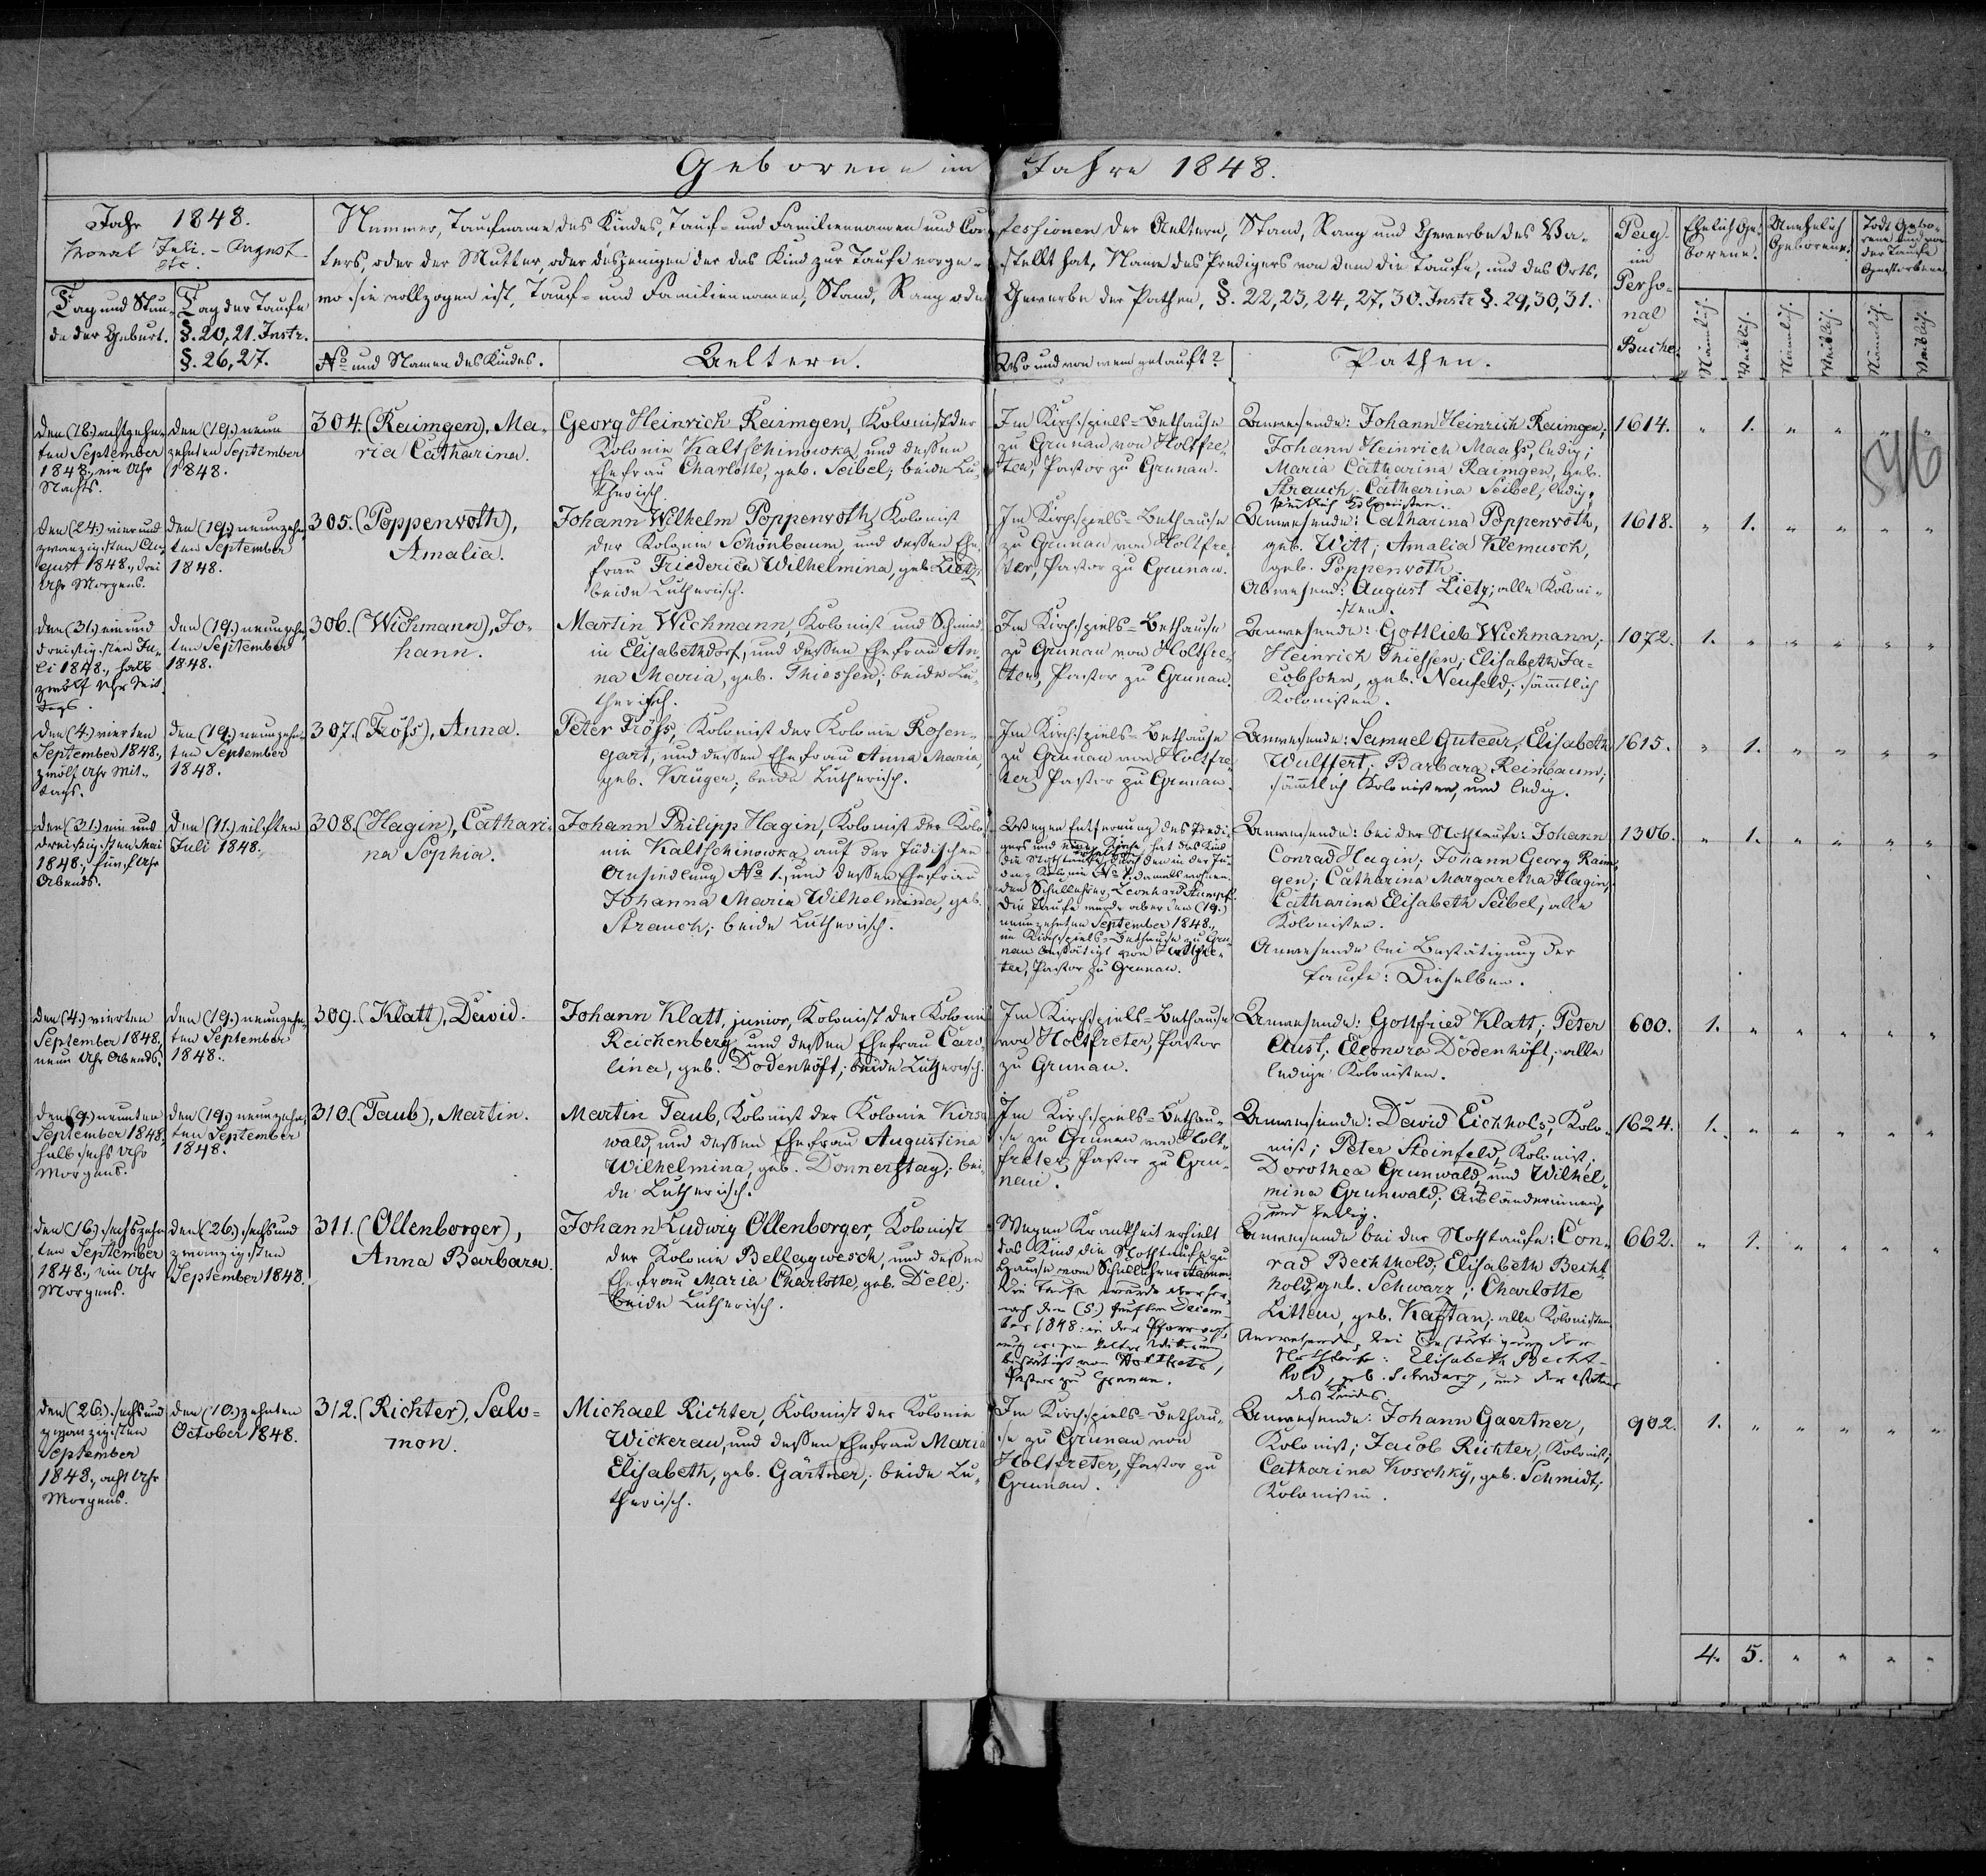 Geborene im Jahre 1848.
Jahr 1848.
Monat Juli. - August
etc.
Tag und Stun-
de der Geburt.
Tag der Taufe
§. 20, 21. Instr.
§. 26, 27.
Nummer, Taufname des Kindes, Tauf- und Familiennamen und Con-
fessionen der Aeltern, Stand, Rang und Gewerbe des Va-
ters, oder der Mutter, oder desjenigen der das Kind zur Taufe vorge-
stellt hat, Name des Predigers von dem die Taufe, und des Orts,
wo sie vollzogen ist, Tauf- und Familiennamen, Stand, Rang oder
Gewerbe der Pathen, §. 22, 23, 24, 27, 30. Instr §. 29, 30, 31.
No und Namen des Kindes.
Aeltern.
Wo und von wem getauft?
Pathen.
Pag.
im
Perso-
nal
Buche.
Ehelich Ge-
borene.
Unehelich
Geborene.
Todt Gebo-
rene und vor
der Taufe
Gestorbene
Männlich.
Weiblich.
Männlich.
Weiblich.
Männlich.
Weiblich.
den (18.) achtzehn-
ten September
1848., ein Uhr
Nachts.
den (19.) neun
zehnten September
1848.
304. (Raimgen), Ma-
ria Catharina.
Georg Heinrich Raimgen, Kolonist der
Kolonie Kaltschinowka, und dessen
Ehefrau Charlotte, geb. Seibel; beide Lu-
therisch.
Im Kirchspiels-Bethause
zu Grunau von Holtfre-
ter, Pastor zu Grunau.
Anwesende: Johann Heinrich Raimgen;
Johann Heinrich Maass, ledig;
Maria Catharina Raimgen, geb.
Strauch; Catharina Seibel, ledig,
sämtlich Kolonisten.
1614. " 1. " " " "
den (24.) vier und
zwanzigsten Au-
gust 1848., drei
Uhr Morgens.
den (19.) neunzehn-
ten September
1848.
305. (Poppenroth),
Amalia.
Johann Wilhelm Poppenroth, Kolonist
der Kolonie Schönbaum, und dessen Ehe-
frau Friederica Wilhelmina, geb. Lietz;
beide Lutherisch.
Im Kirchspiels-Bethause
zu Grunau von Holtfre-
ter, Pastor zu Grunau.
Anwesende: Catharina Poppenroth,
geb. Witt; Amalia Klemusch,
geb. Poppenroth.
Abwesend: August Lietz; alle Koloni-
sten.
1618. " 1. " " " "
den (31.) ein und
dreißigsten Ju-
li 1848., halb
zwölf Uhr Mit-
tags.
den (19.) neunzehn-
ten September
1848.
306. (Wichmann), Jo-
hann.
Martin Wichmann, Kolonist und Schmied
in Elisabethdorf, und dessen Ehefrau An-
na Maria, geb. Thiessen; beide Lu-
therisch.
Im Kirchspiels-Bethause
zu Grunau von Holtfre-
ter, Pastor zu Grunau.
Anwesende: Gottlieb Wichmann;
Heinrich Thiessen; Elisabeth Ja-
cobsohn, geb. Neufeld; sämmtlich
Kolonisten.
1072. 1. " " " " "
den (4.) vierten
September 1848.,
zwölf Uhr Mit-
tags.
den (19.) neunzehn-
ten September
1848.
307. (Fröss), Anna.
Peter Fröss, Kolonist der Kolonie Rosen-
gart, und dessen Ehefrau Anna Maria,
geb. Krüger; beide Lutherisch.
Im Kirchspiels-Bethause
zu Grunau von Holtfre-
ter, Pastor zu Grunau.
Anwesende: Samuel Gutear; Elisabeth
Wulffert; Barbara Reinbaum;
sämmtlich Kolonisten, und ledig.
1615. " 1. " " " "
den (31.) ein und
dreißigsten Mai
1848., fünf Uhr
Abends.
den (11.) eilften
Juli 1848.
308. (Hagin), Cathari-
na Sophia.
Johann Philipp Hagin, Kolonist der Kolo-
nie Kaltschinowka, auf der Jüdischen
Ansiedlung No 1., und dessen Ehefrau
Johanna Maria Wilhelmina, geb.
Strauch; beide Lutherisch.
Wegen Entfernung des Predi-
gers und der Kirche, hat das Kind
die Nothtaufe erhalten durch den in der Ju-
den-Kolonie No 1. damals wohnen-
den Schullehrer, Leonhard Rumpf.
Die Taufe wurde aber den (19.)
neunzehnten September 1848.,
im Kirchspiels-Bethause zu Gru-
nau bestätigt von Holtfre-
ter, Pastor zu Grunau.
Anwesende: bei der Nothtaufe: Johann
Conrad Hagin; Johann Georg Raim-
gen; Catharina Margaretha Hagin;
Catharina Elisabeth Seibel, alle
Kolonisten.
Anwesende bei Bestätigung der
Taufe: Dieselben.
1306. " 1. " " " "
den (4.) vierten
September 1848,
neun Uhr Abends.
den (19.) neunzehn-
ten September
1848.
309. (Klatt), David.
Johann Klatt, junior, Kolonist der Kolonie
Reichenberg, und dessen Ehefrau Caro-
lina, geb. Dodenhöft; beide Lutherisch.
Im Kirchspiels-Bethause
von Holtfreter, Pastor
zu Grunau.
Anwesende: Gottfried Klatt; Peter
Aust; Eleonora Dodenhöft; alle
ledige Kolonisten.
600. 1. " " " " "
den (9.) neunten
September 1848.
halb sechs Uhr
Morgens.
den (19.) neunzehn-
ten September
1848.
310. (Taub), Martin.
Martin Taub, Kolonist der Kolonie Kirsch-
wald, und dessen Ehefrau Augustina
Wilhelmina, geb. Donnerstag; bei-
de Lutherisch.
Im Kirchspiels-Bethau-
se zu Grunau von Holt-
freter, Pastor zu Gru-
nau.
Anwesende: David Eichholz, Kolo-
nist; Peter Steinfeld, Kolonist;
Dorothea Grunwald, und Wilhel-
mina Grunwald; Ausländerinnen,
und ledig.
1624. 1. " " " " "
den (16.) sechszehn
ten September
1848., ein Uhr
Morgens.
den (26.) sechs und
zwanzigsten
September 1848.
311. (Ollenborger),
Anna Barbara.
Johann Ludwig Ollenborger, Kolonist
der Kolonie Bellagwesch, und dessen
Ehefrau Maria Charlotte, geb. Dell;
beide Lutherisch.
Wegen Krankheit erhielt
das Kind die Nothtaufe zu
Hause vom Schullehrer
Die Taufe wurde aber her-
nach den (5.) fünften Decem-
ber 1848. in der
wegen kalter Witterung
bestätigt von Holtfreter,
Pastor zu Grunau.
Anwesende bei der Nothtaufe: Con-
rad Bechthold; Elisabeth Becht-
hold, geb. Schwarz; Charlotte
Littem, geb. Kaftan; alle Kolonisten.
Anwesende bei Bestätigung der
Nothtaufe: Elisabeth Becht-
hold, geb. Schwarz, und der Vater
des Kindes.
662. " 1. " " " "
den (26.) sechs und
zwanzigsten
September
1848., acht Uhr
Morgens.
den (10.) zehnten
October 1848.
312. (Richter), Salo-
mon.
Michael Richter, Kolonist der Kolonie
Wickerau, und dessen Ehefrau Maria
Elisabeth, geb. Gärtner; beide Lu-
therisch.
Im Kirchspiels-Bethau-
se zu Grunau von
Holtfreter, Pastor zu
Grunau.
Anwesende: Johann Gaertner,
Kolonist; Jacob Richter, Kolonist;
Catharina Koschky, geb. Schmidt;
Kolonistin.
902. 1. " " " " "
4. 5. " " " "